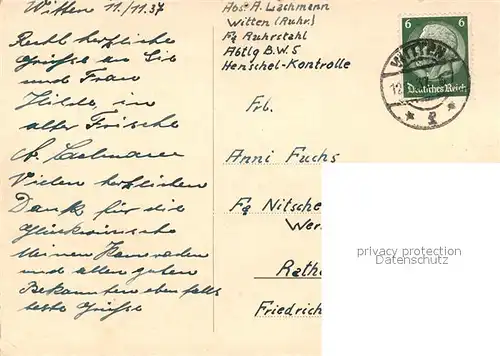 Witten 11./11.37
Recht herzliche
Grüsse an Sie
und Frau
Hilde, in
alter Frische
A. Lachmann
Vielen herzlichen
Dank für die
Glückwünsche
Meinen Kameraden
und allen guten
Bekannten ebenfalls
beste Grüsse
Abs. A. Lachmann
Witten (Ruhr)
Fa Ruhrstahl
Abtlg B.W.5
Henschel-Kontrolle
6 6
Deutsches Reich
WITTEN
Frl.
Anni Fuchs
Fa Nitsche
Wer
Rathe
Friedrich
privacy protection
Datenschutz